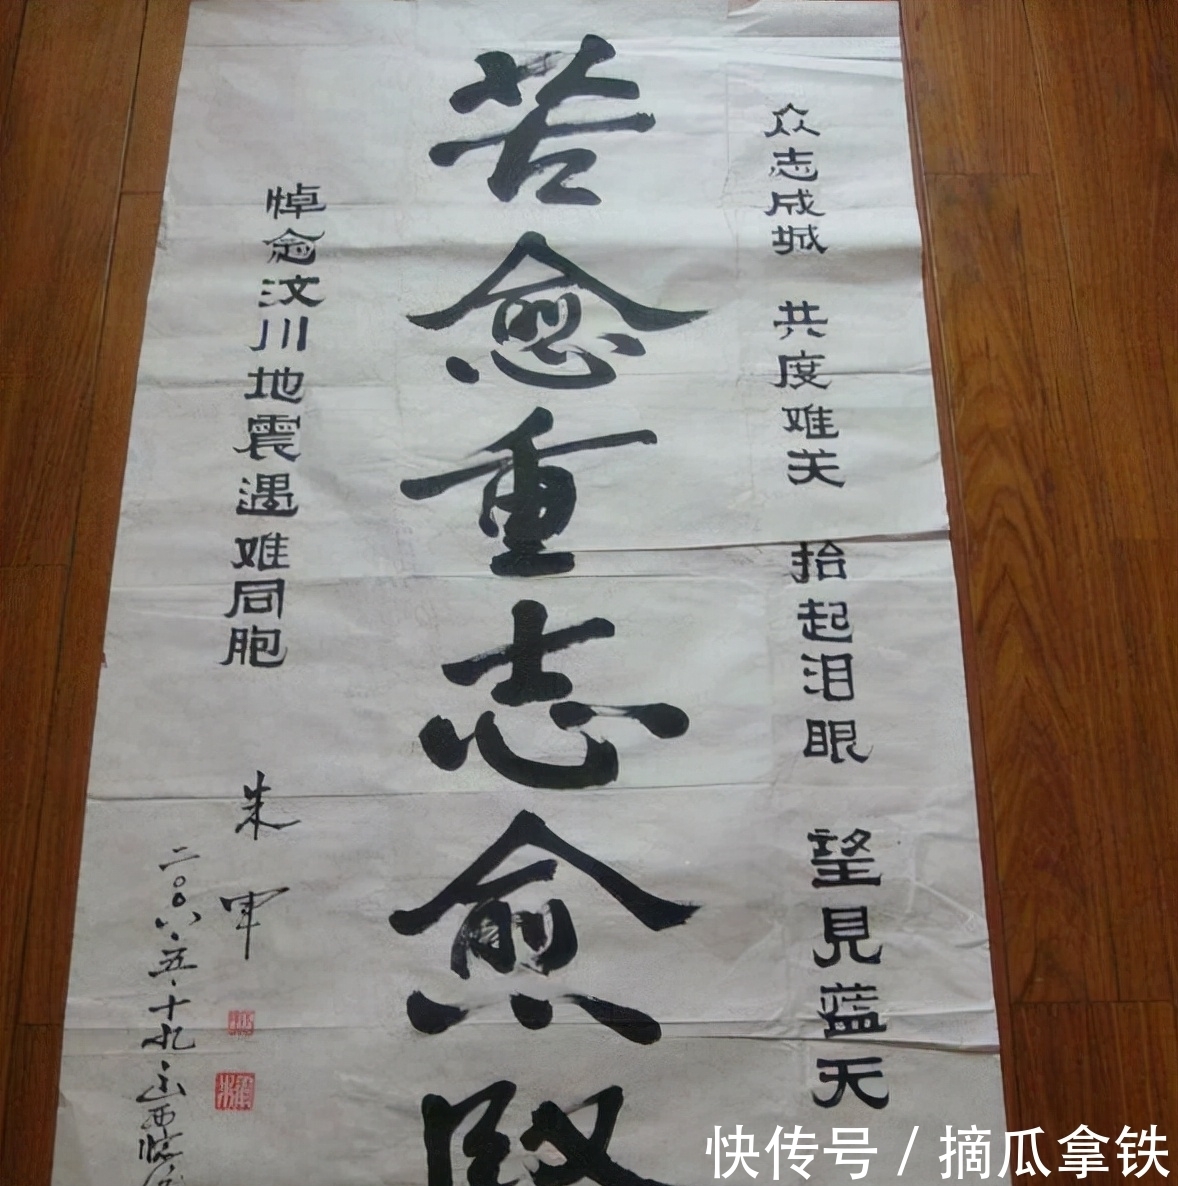 众志成城 共度难关 抬起泪眼 望見蓝天
苦愈重志愈
悼念汶川地震遇难同胞 朱军
二〇〇八·五·十九·山西临
快传号/摘瓜拿铁